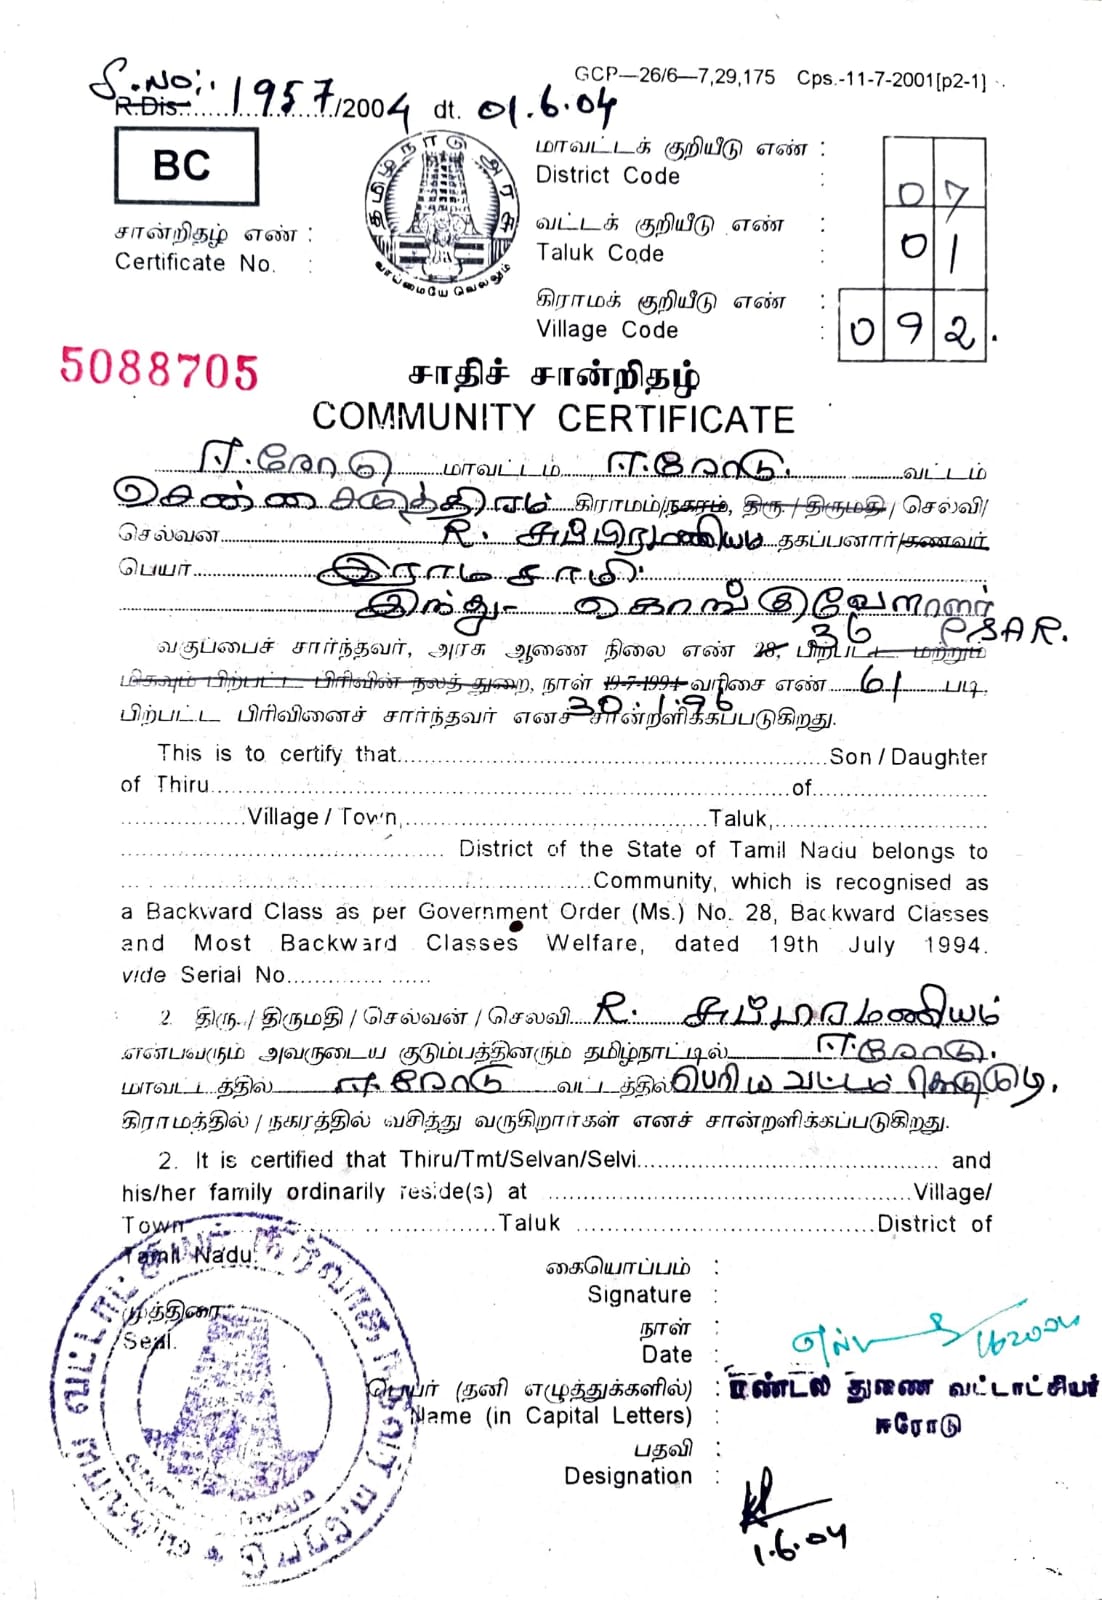 S.No:. R.Dis. 1957/2004 dt. 01.6.04
GCP—26/6—7,29,175 Cps.-11-7-2001[p2-1]
BC
தமிழ்நாடு அரசு
வாய்மையே வெல்லும்
சான்றிதழ் எண் :
Certificate No. :
மாவட்டக் குறியீடு எண் :
District Code : 07
வட்டக் குறியீடு எண் :
Taluk Code : 01
கிராமக் குறியீடு எண் :
Village Code : 092.
5088705
சாதிச் சான்றிதழ்
COMMUNITY CERTIFICATE
ஈரோடு மாவட்டம் ஈரோடு. வட்டம்
கிராமம்/நகரம், திரு. / திருமதி / செல்வி/
செல்வன் R. சுப்பிரமணியம் தகப்பனார்/கணவர்
பெயர் இராமசாமி.
இந்து- கொங்கு வேளாளர்
வகுப்பைச் சார்ந்தவர், அரசு ஆணை நிலை எண் 28, 36 பிற்பட்ட மற்றும்
மிகவும் பிற்பட்ட பிரிவின் நலத் துறை, நாள் 19-7-1994 30.1.96 வரிசை எண் 61 படி,
பிற்பட்ட பிரிவினைச் சார்ந்தவர் எனச் சான்றளிக்கப்படுகிறது.
This is to certify that Son / Daughter
of Thiru of
Village / Town, Taluk,
District of the State of Tamil Nadu belongs to
Community, which is recognised as
a Backward Class as per Government Order (Ms.) No. 28, Backward Classes
and Most Backward Classes Welfare, dated 19th July 1994.
vide Serial No.
2. திரு. / திருமதி / செல்வன் / செல்வி R. சுப்பிரமணியம்
என்பவரும் அவருடைய குடும்பத்தினரும் தமிழ்நாட்டில் ஈரோடு.
மாவட்டத்தில் ஈரோடு வட்டத்தில்
கிராமத்தில் / நகரத்தில் வசித்து வருகிறார்கள் எனச் சான்றளிக்கப்படுகிறது.
2. It is certified that Thiru/Tmt/Selvan/Selvi and
his/her family ordinarily reside(s) at Village/
Town Taluk District of
Tamil Nadu.
முத்திரை
Seal.
கையொப்பம் :
Signature :
நாள் :
Date :
பெயர் (தனி எழுத்துக்களில்) :
Name (in Capital Letters) :
மண்டல துணை வட்டாட்சியர்
ஈரோடு
பதவி :
Designation :
1.6.04